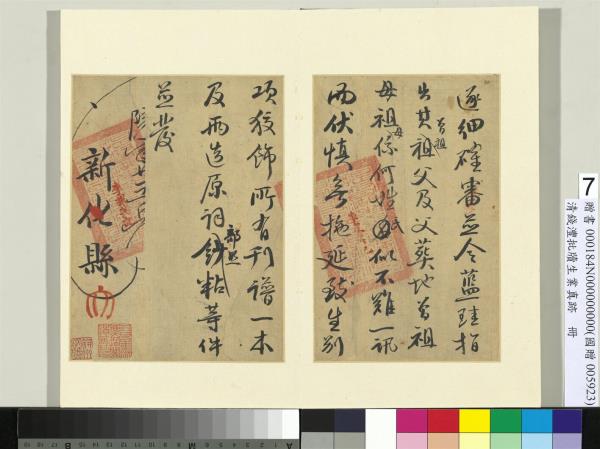 逐細確審並令藍璉指
出其祖父及父葬地曾祖
曾祖
母祖母係何姓氏似不難一訊
而伏慎無拖延致生別
項狡飾所有刊譜一本
及兩造原詞鈔粘等件
並發
新化縣
7
贈書 000184N000000000(國贈 005923)
清錢灃批牘生業真跡 冊